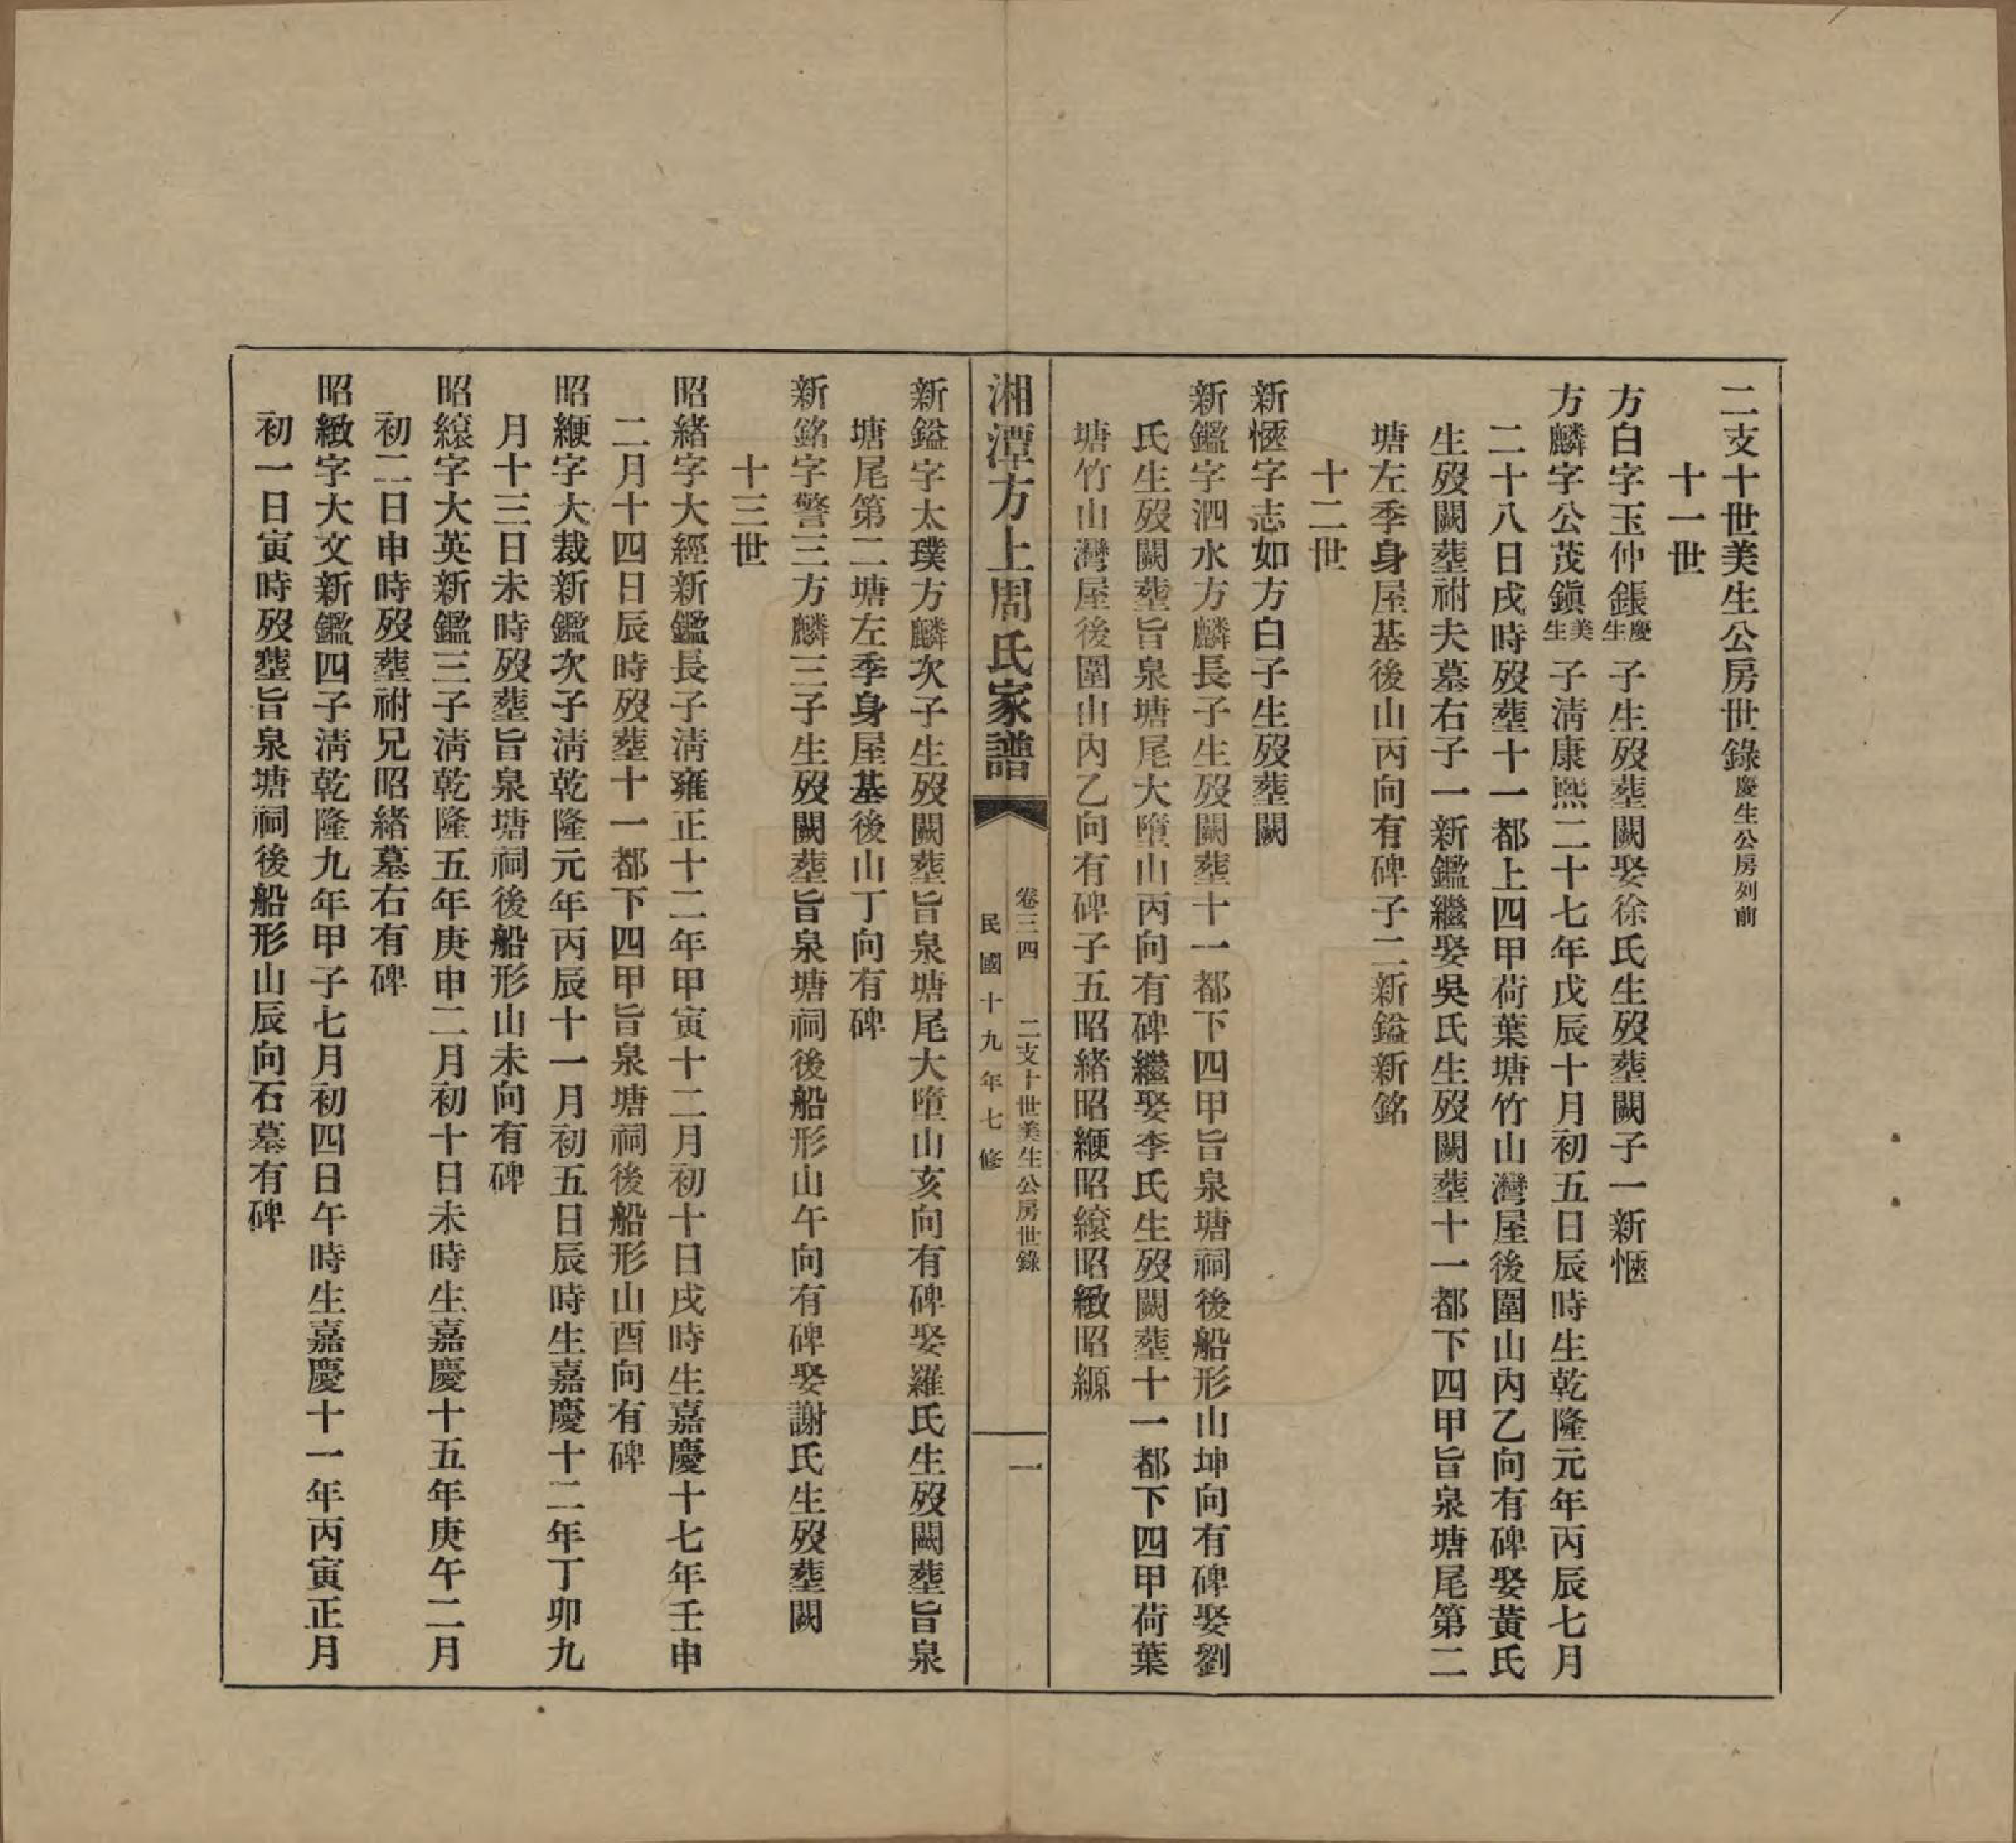 二支十世美生公房世錄慶生公房列前
十一世
方白字玉仲鋹慶生子生歿葬闕娶徐氏生歿葬闕子一新愜
方麟字公茂鎭美生子淸康熙二十七年戊辰十月初五日辰時生乾隆元年丙辰七月
二十八日戌時歿葬十一都上四甲荷葉塘竹山灣屋後圍山內乙向有碑娶黃氏
生歿闕葬祔夫墓右子一新鑑繼娶吳氏生歿闕葬十一都下四甲旨泉塘尾第二
塘左季身屋基後山丙向有碑子二新鎰新銘
十二世
新愜字志如方白子生歿葬闕
新鑑字泗水方麟長子生歿闕葬十一都下四甲旨泉塘祠後船形山坤向有碑娶劉
氏生歿闕葬旨泉塘尾大墮山丙向有碑繼娶李氏生歿闕葬十一都下四甲荷葉
塘竹山灣屋後圍山內乙向有碑子五昭緒昭緶昭緩昭緻昭縓
湘潭方上周氏家譜
卷三四 二支十世美生公房世錄
民國十九年七修
一
新鎰字太璞方麟次子生歿闕葬旨泉塘尾大墮山亥向有碑娶羅氏生歿闕葬旨泉
塘尾第二塘左季身屋基後山丁向有碑
新銘字警三方麟三子生歿闕葬旨泉塘祠後船形山午向有碑娶謝氏生歿葬闕
十三世
昭緒字大經新鑑長子淸雍正十二年甲寅十二月初十日戌時生嘉慶十七年壬申
二月十四日辰時歿葬十一都下四甲旨泉塘祠後船形山酉向有碑
昭緶字大裁新鑑次子淸乾隆元年丙辰十一月初五日辰時生嘉慶十二年丁卯九
月十三日未時歿葬旨泉塘祠後船形山未向有碑
昭緩字大英新鑑三子淸乾隆五年庚申二月初十日未時生嘉慶十五年庚午二月
初二日申時歿葬祔兄昭緒墓右有碑
昭緻字大文新鑑四子淸乾隆九年甲子七月初四日午時生嘉慶十一年丙寅正月
初一日寅時歿葬旨泉塘祠後船形山辰向石墓有碑